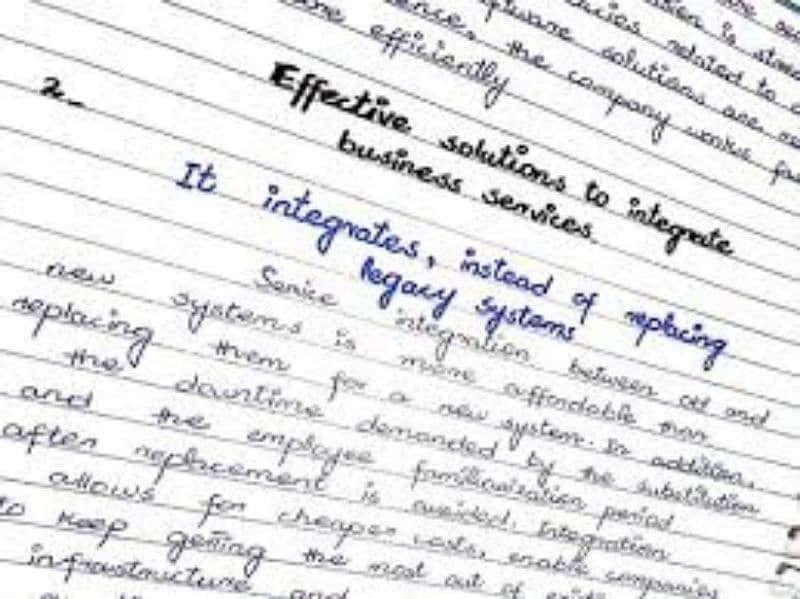 ence, the company works
more efficiently
2. Effective solutions to integrate
business services.
It integrates, instead of replacing
legacy systems
Service integration between old and
new systems is more affordable than
replacing them for a new system. In addition,
the downtime demanded by the substitution
and the employee familiarization period
after replacement is avoided. Integration
allows for cheaper costs, enable companies
to keep getting the most out of
infrastructure and